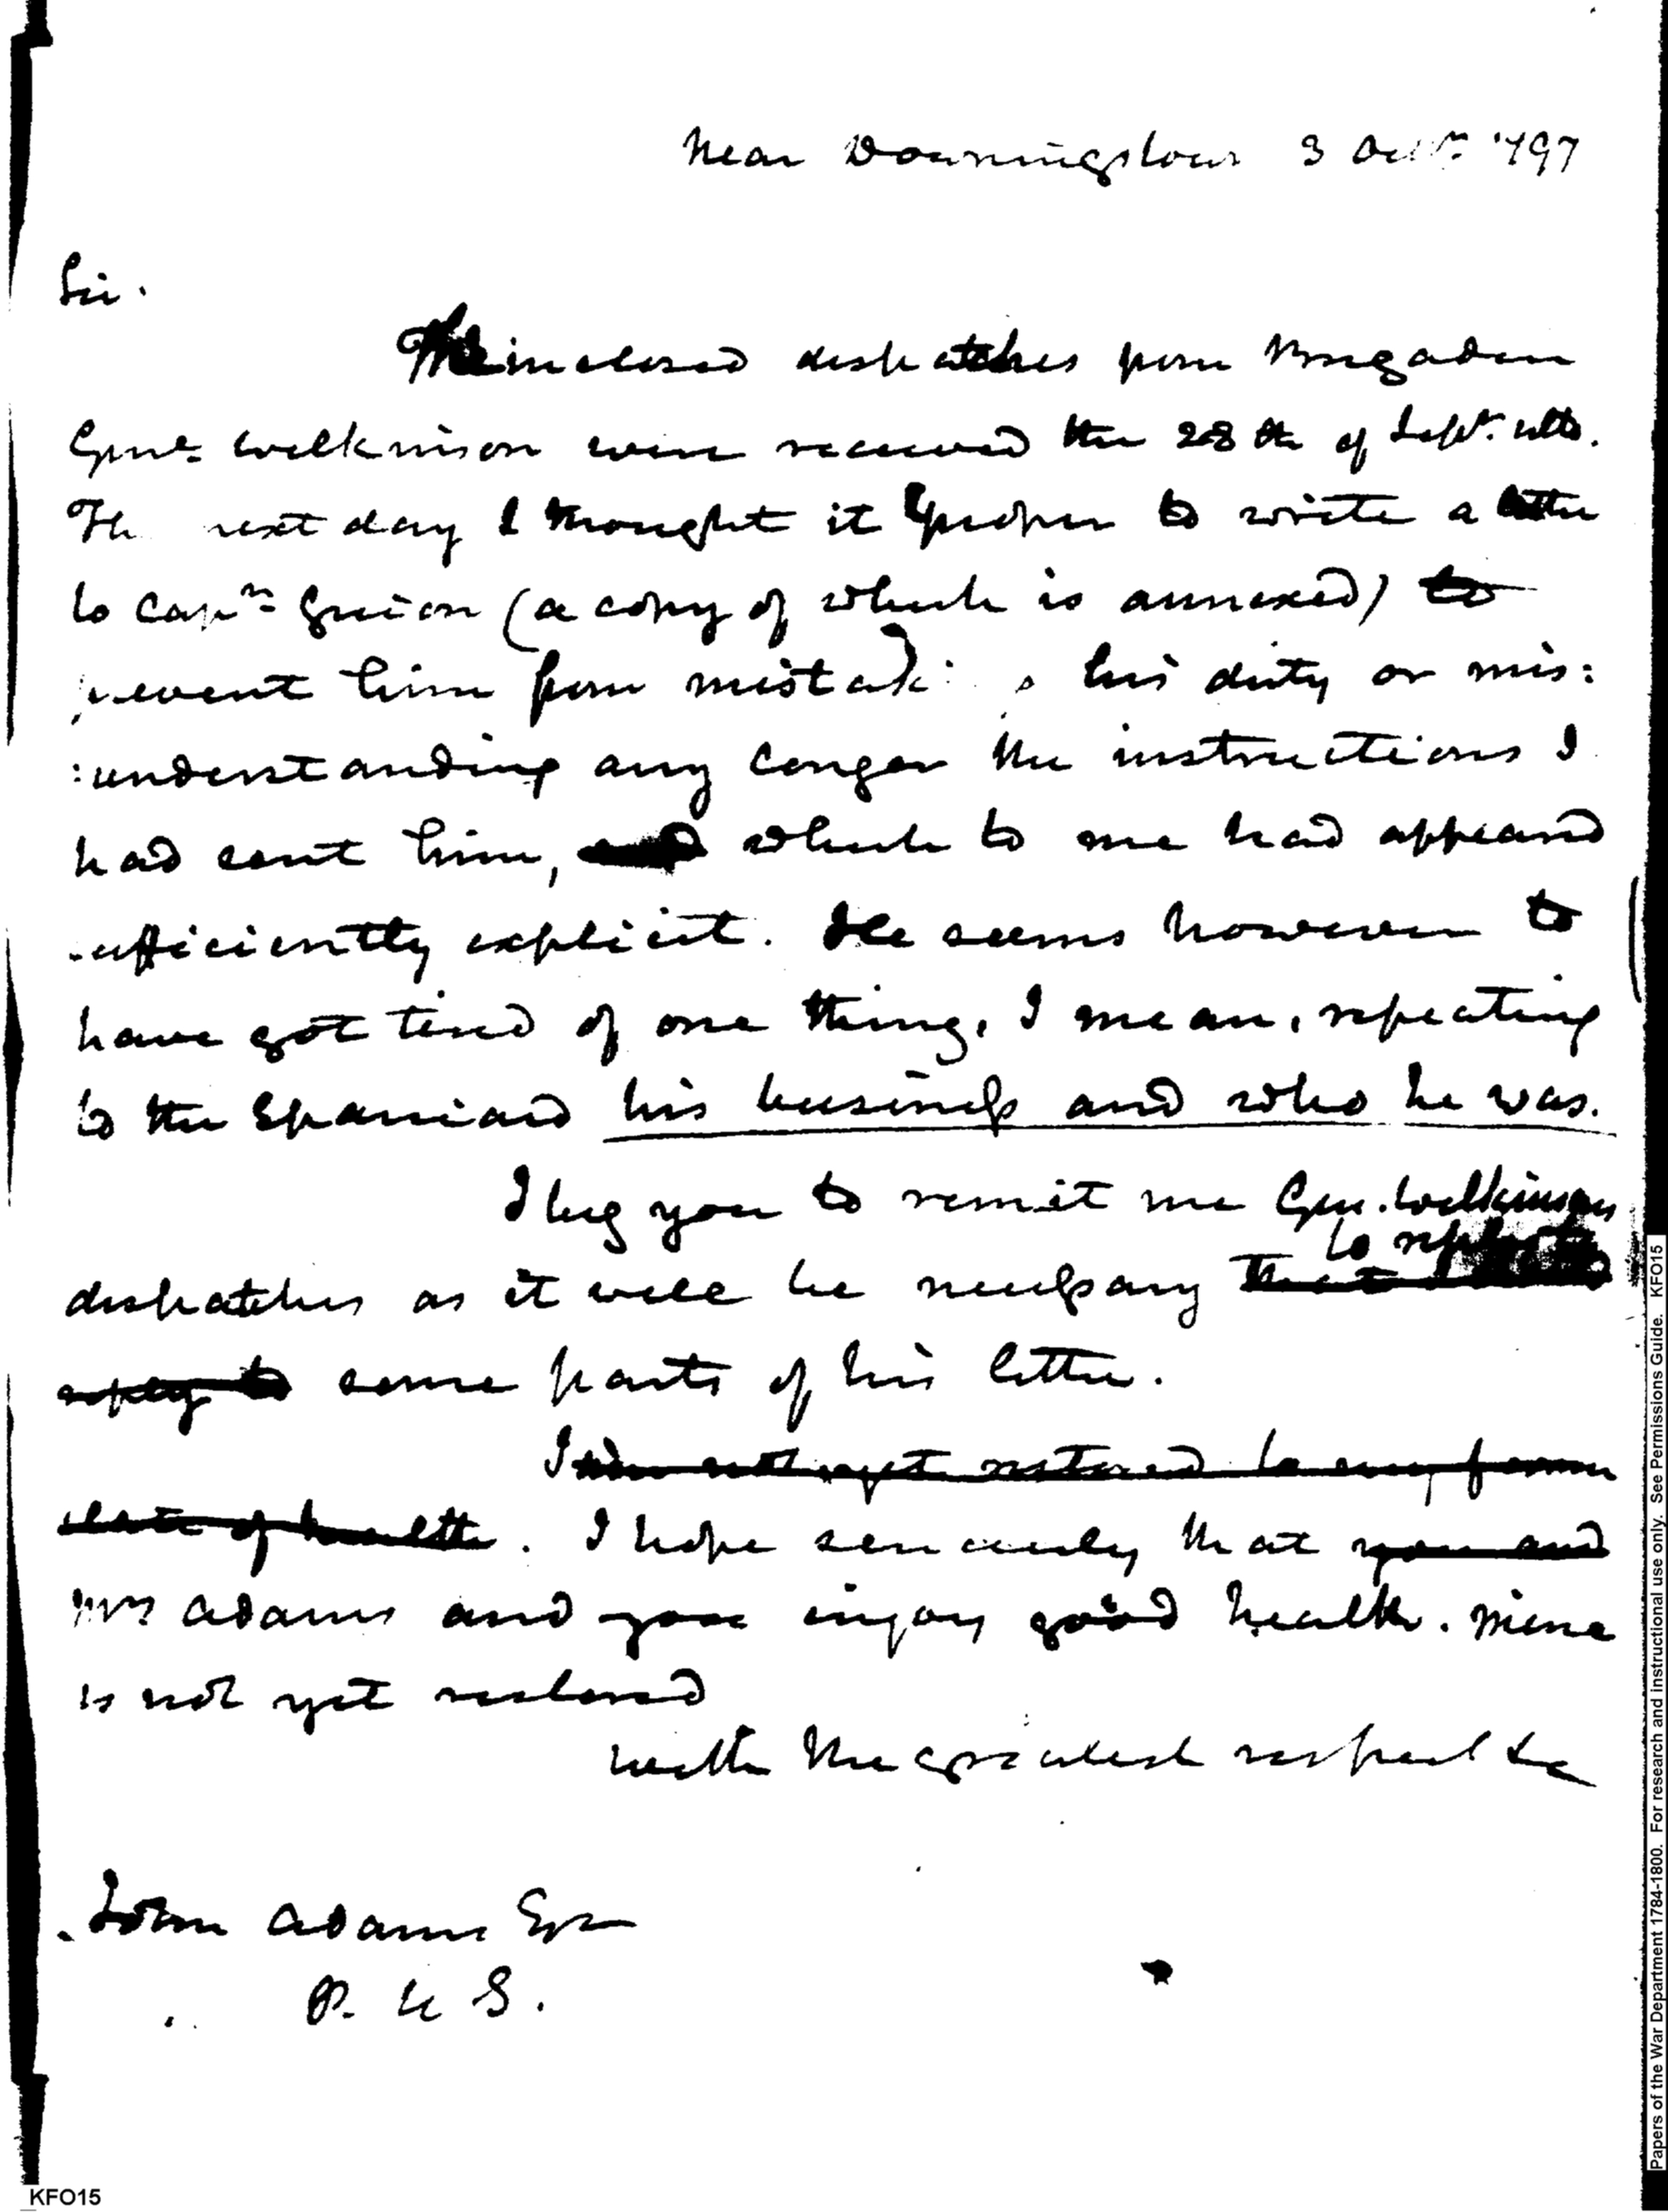 Near Downingstown 3 Octr. 1797
Sir.
The inclosed dispatches from Brigadier
Genl. Wilkinson were received the 28th of Sept. ulto.
The next day I thought it proper to write a letter
to Capn. Guion (a copy of which is annexed) to
prevent him from mistaking his duty or mis:
:understanding any longer the instructions I
had sent him, which to me had appeared
sufficiently explicit. He seems however to
have got tired of one thing, I mean, repeating
to the Spaniard his business and who he was.
I beg you to remit me Gen. Wilkinsons
to
dispatches as it will be necessary that
reply to some parts of his letter.
I am not yet restored to my former
state of health. I hope sincerely that you and
Mrs Adams and you enjoy good health. Mine
is not yet restored
with the greatest respect &c
John Adams Esqr
P. U S.
KFO15
Papers of the War Department 1784-1800. For research and instructional use only. See Permissions Guide. KFO15